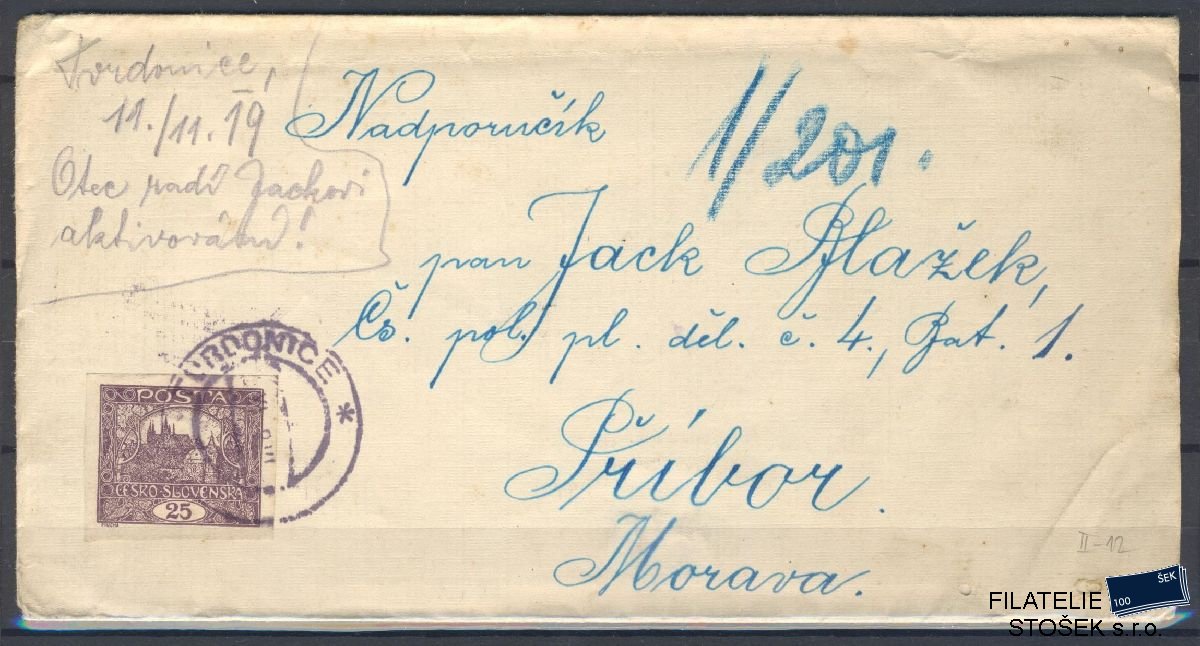 Tvrdonice,
11./11. 19
Otec radí Jackovi
aktivování!
Nadporučík
1/201.
pan Jack Blažek,
Čs. pol. pl. děl. č. 4., Bat. 1.
Příbor.
Morava.
POŠTA
ČESKO-SLOVENSKÁ
25
II-12
ŠEK
100
FILATELIE
STOŠEK s.r.o.